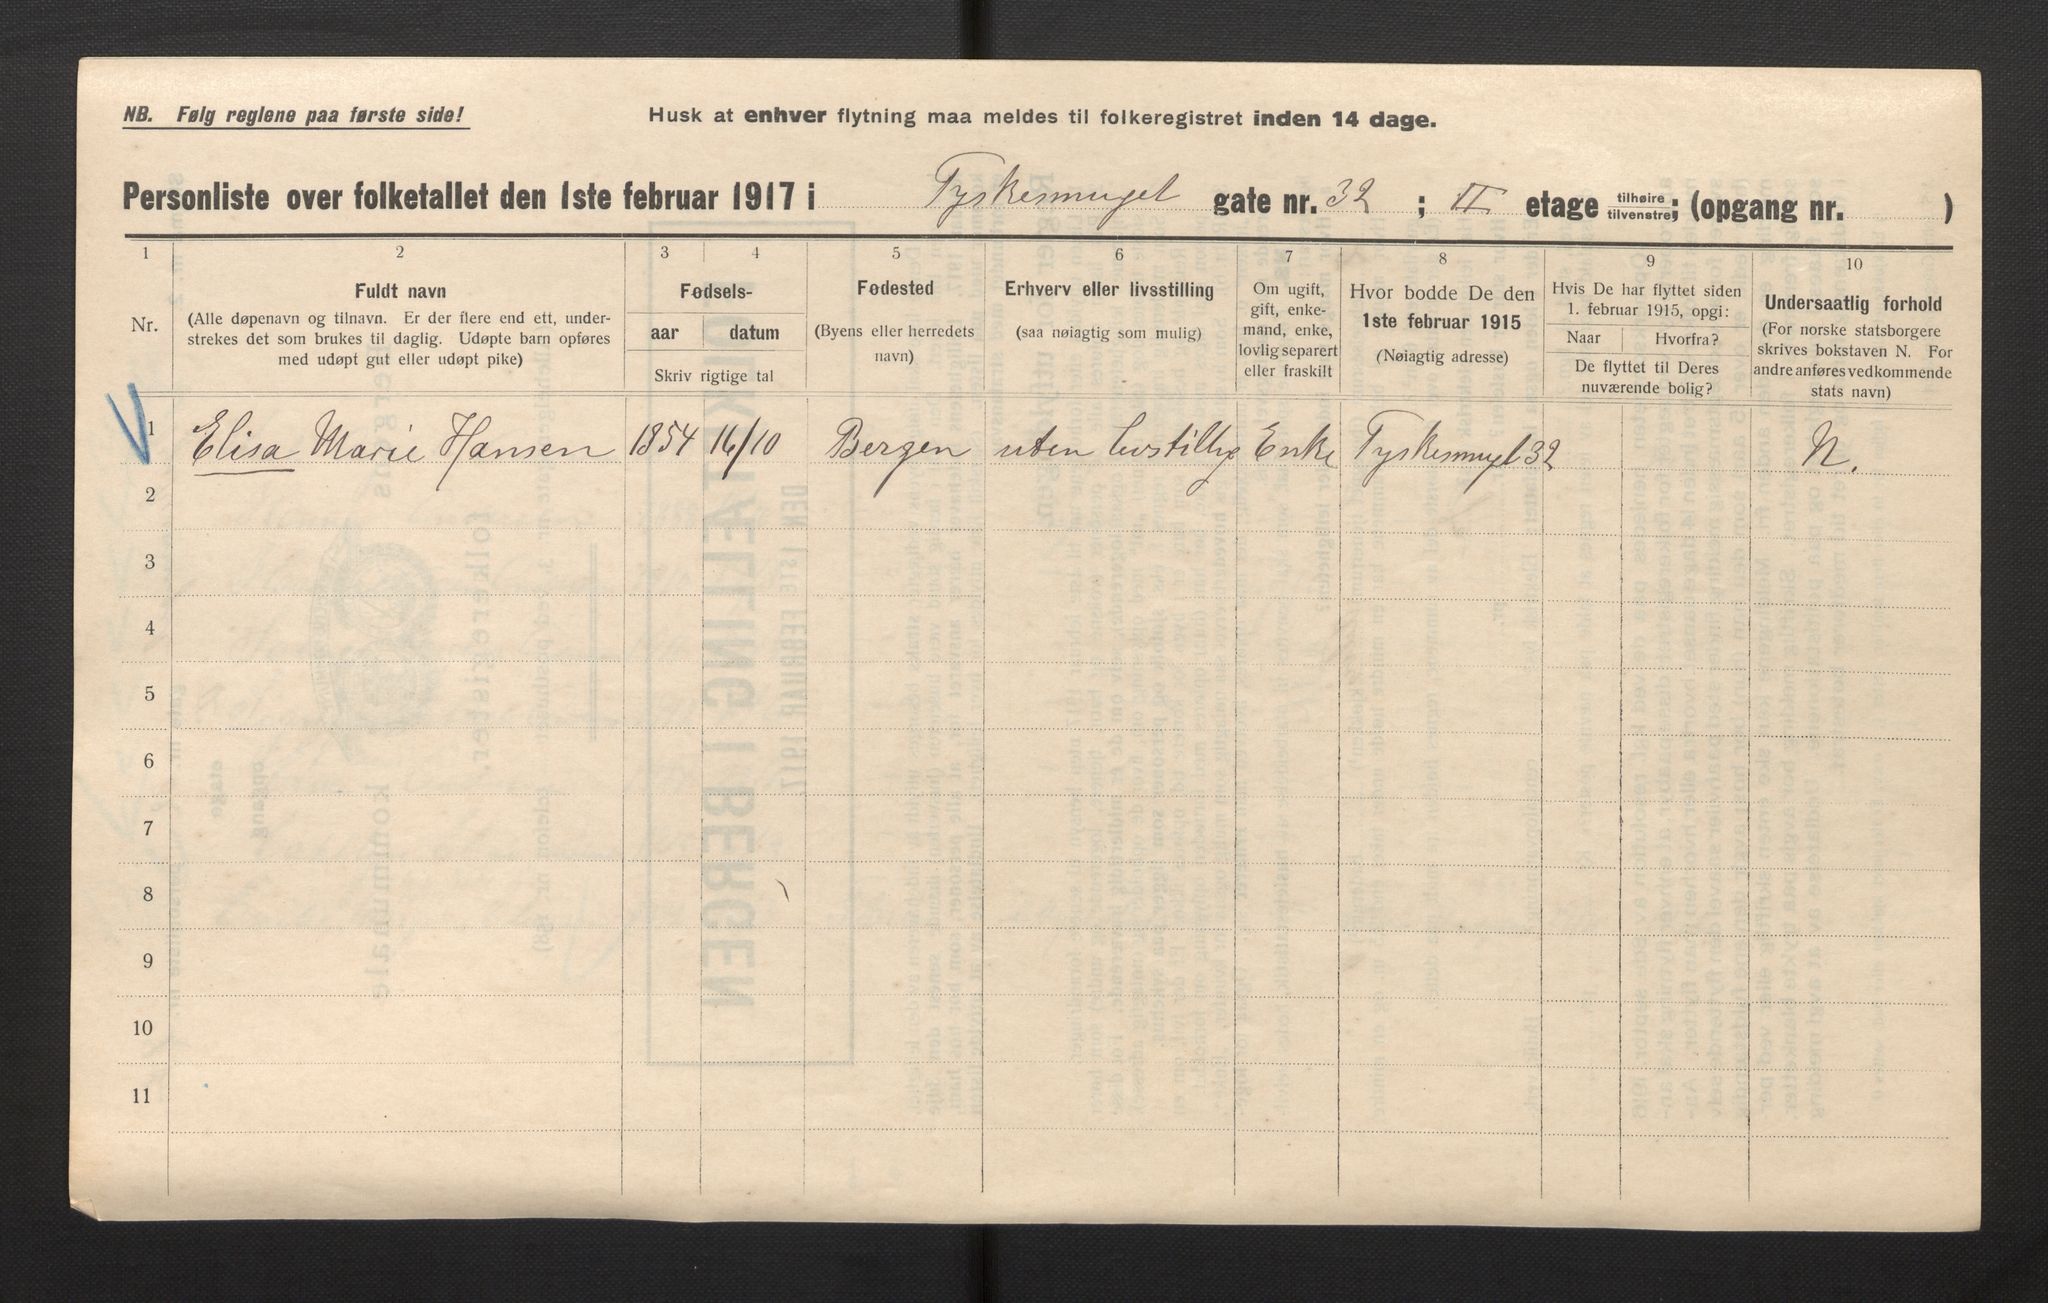 NB. Følg reglene paa første side!
Husk at enhver flytning maa meldes til folkeregistret inden 14 dage.
Personliste over folketallet den 1ste februar 1917 i Tyskesmuget gate nr. 32 ; II etage tilhøire tilvenstre ; (opgang nr. )
1 2 3 4 5 6 7 8 9 10
Nr.
Fuldt navn
(Alle døpenavn og tilnavn. Er der flere end ett, under-
strekes det som brukes til daglig. Udøpte barn opføres
med udøpt gut eller udøpt pike)
Fødsels-
aar datum
Skriv rigtige tal
Fødested
(Byens eller herredets
navn)
Erhverv eller livsstilling
(saa nøiagtig som mulig)
Om ugift,
gift, enke-
mand, enke,
lovlig separert
eller fraskilt
Hvor bodde De den
1ste februar 1915
(Nøiagtig adresse)
Hvis De har flyttet siden
1. februar 1915, opgi:
Naar Hvorfra?
De flyttet til Deres
nuværende bolig?
Undersaatlig forhold
(For norske statsborgere
skrives bokstaven N. For
andre anføres vedkommende
stats navn)
1 Elisa Marie Hansen 1854 16/10 Bergen uten livstillig Enke Tyskesmuget 32 N.
2
3
4
5
6
7
8
9
10
11